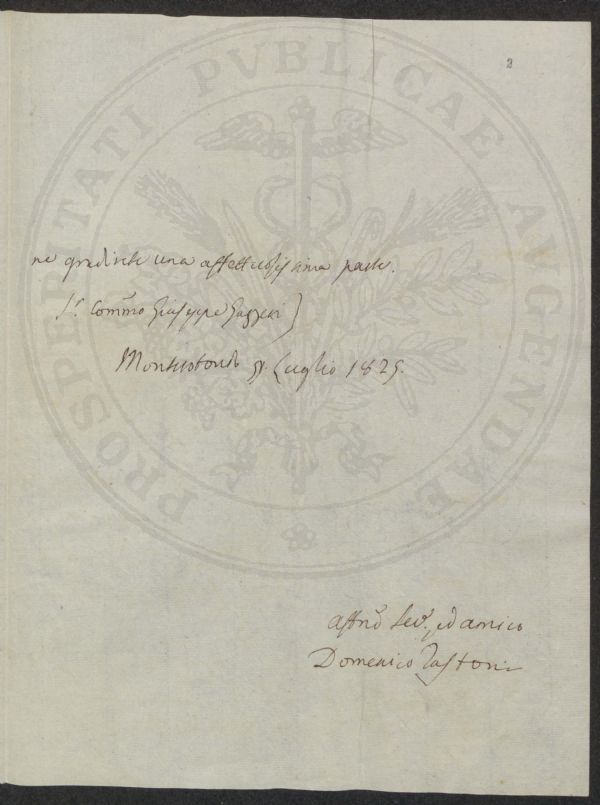 2
PROSPERITATI PVBLICAE AVGENDAE
ne gradirete una affettuosissima parte.
Sr. Commo Giuseppe Gazzeri
Monterotondo Luglio 1825.
affmo Serv. ed amico
Domenico Tastoni